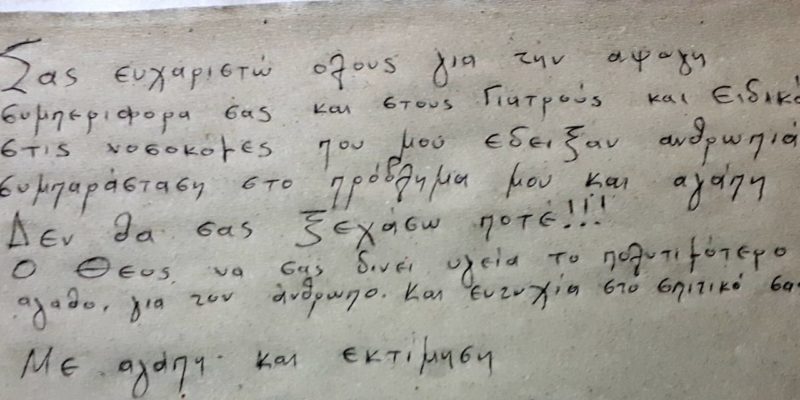 Σας ευχαριστώ ολους για την αψογη
συμπεριφορα σας και στους Γιατρούς και Ειδικά
στις νοσοκόμες που μου εδειξαν ανθρωπιά
συμπαράσταση στο πρόβλημα μου και αγάπη
Δεν θα σας ξεχάσω ποτέ!!!
Ο Θεος να σας δινει υγεία το πολυτιμότερο
αγαθο, για τον άνθρωπο. Και ευτυχία στο σπιτικό σας
Με αγάπη και εκτίμηση